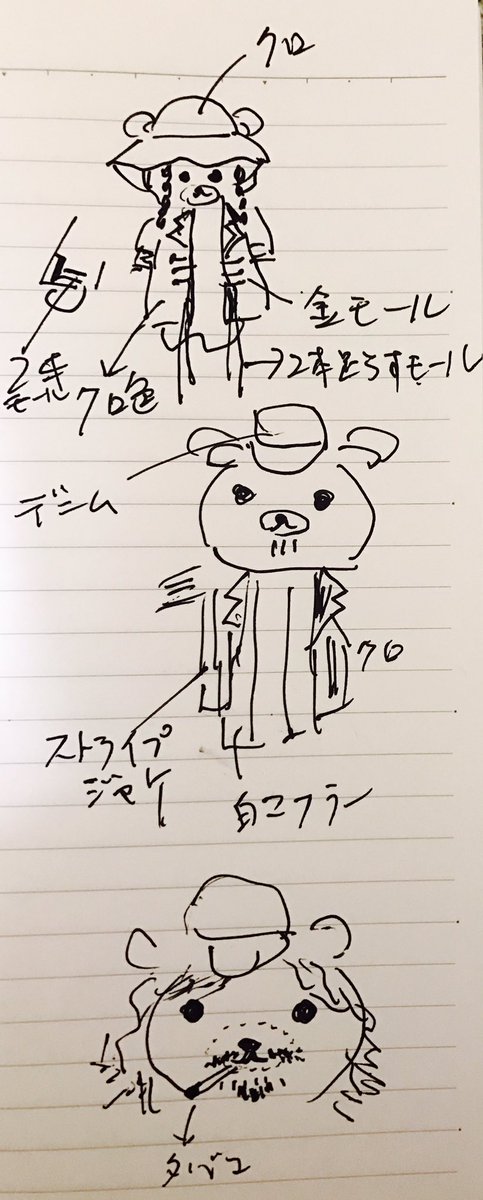 クロ
金モール
2本
モール
クロ色
→2本足らすモール
デニム
クロ
ストライプ
ジャケ
白マフラー
タバコ